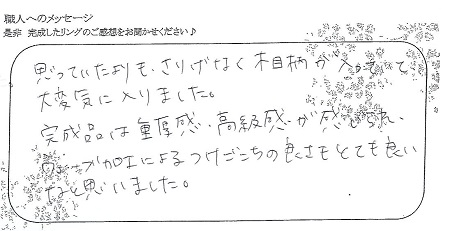 職人へのメッセージ
是非 完成したリングのご感想をお聞かせください♪
思っていたよりも、さりげなく木目柄が入っていて
大変気に入りました。
完成品は重厚感・高級感が感じられ
加工によるつけごこちの良さもとても良い
なと思いました。